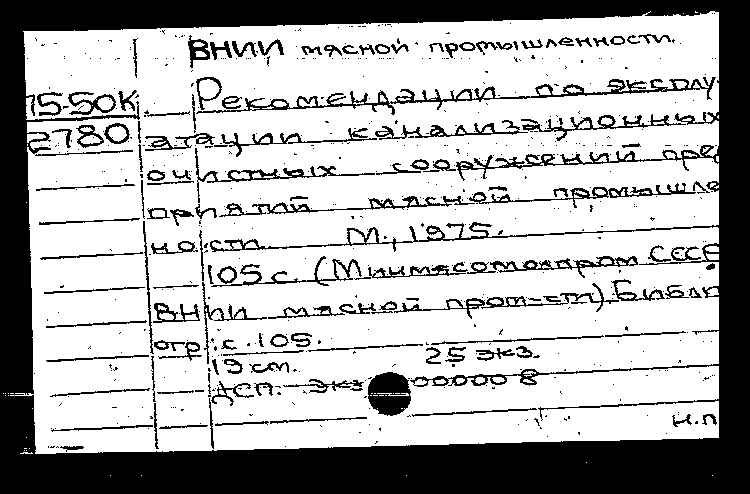 ВНИИ мясной промышленности.
75-50К Рекомендации по эксплу-
2780 атации канализационных
очистных сооружений пред
приятий мясной промышле
ности. М., 1975.
105 с. (Минмясомолпром СССР
ВНИИ мясной пром-сти). Библи
огр.: с. 105.
19 см. 25 экз.
ДСП. Экз 000008
н.п